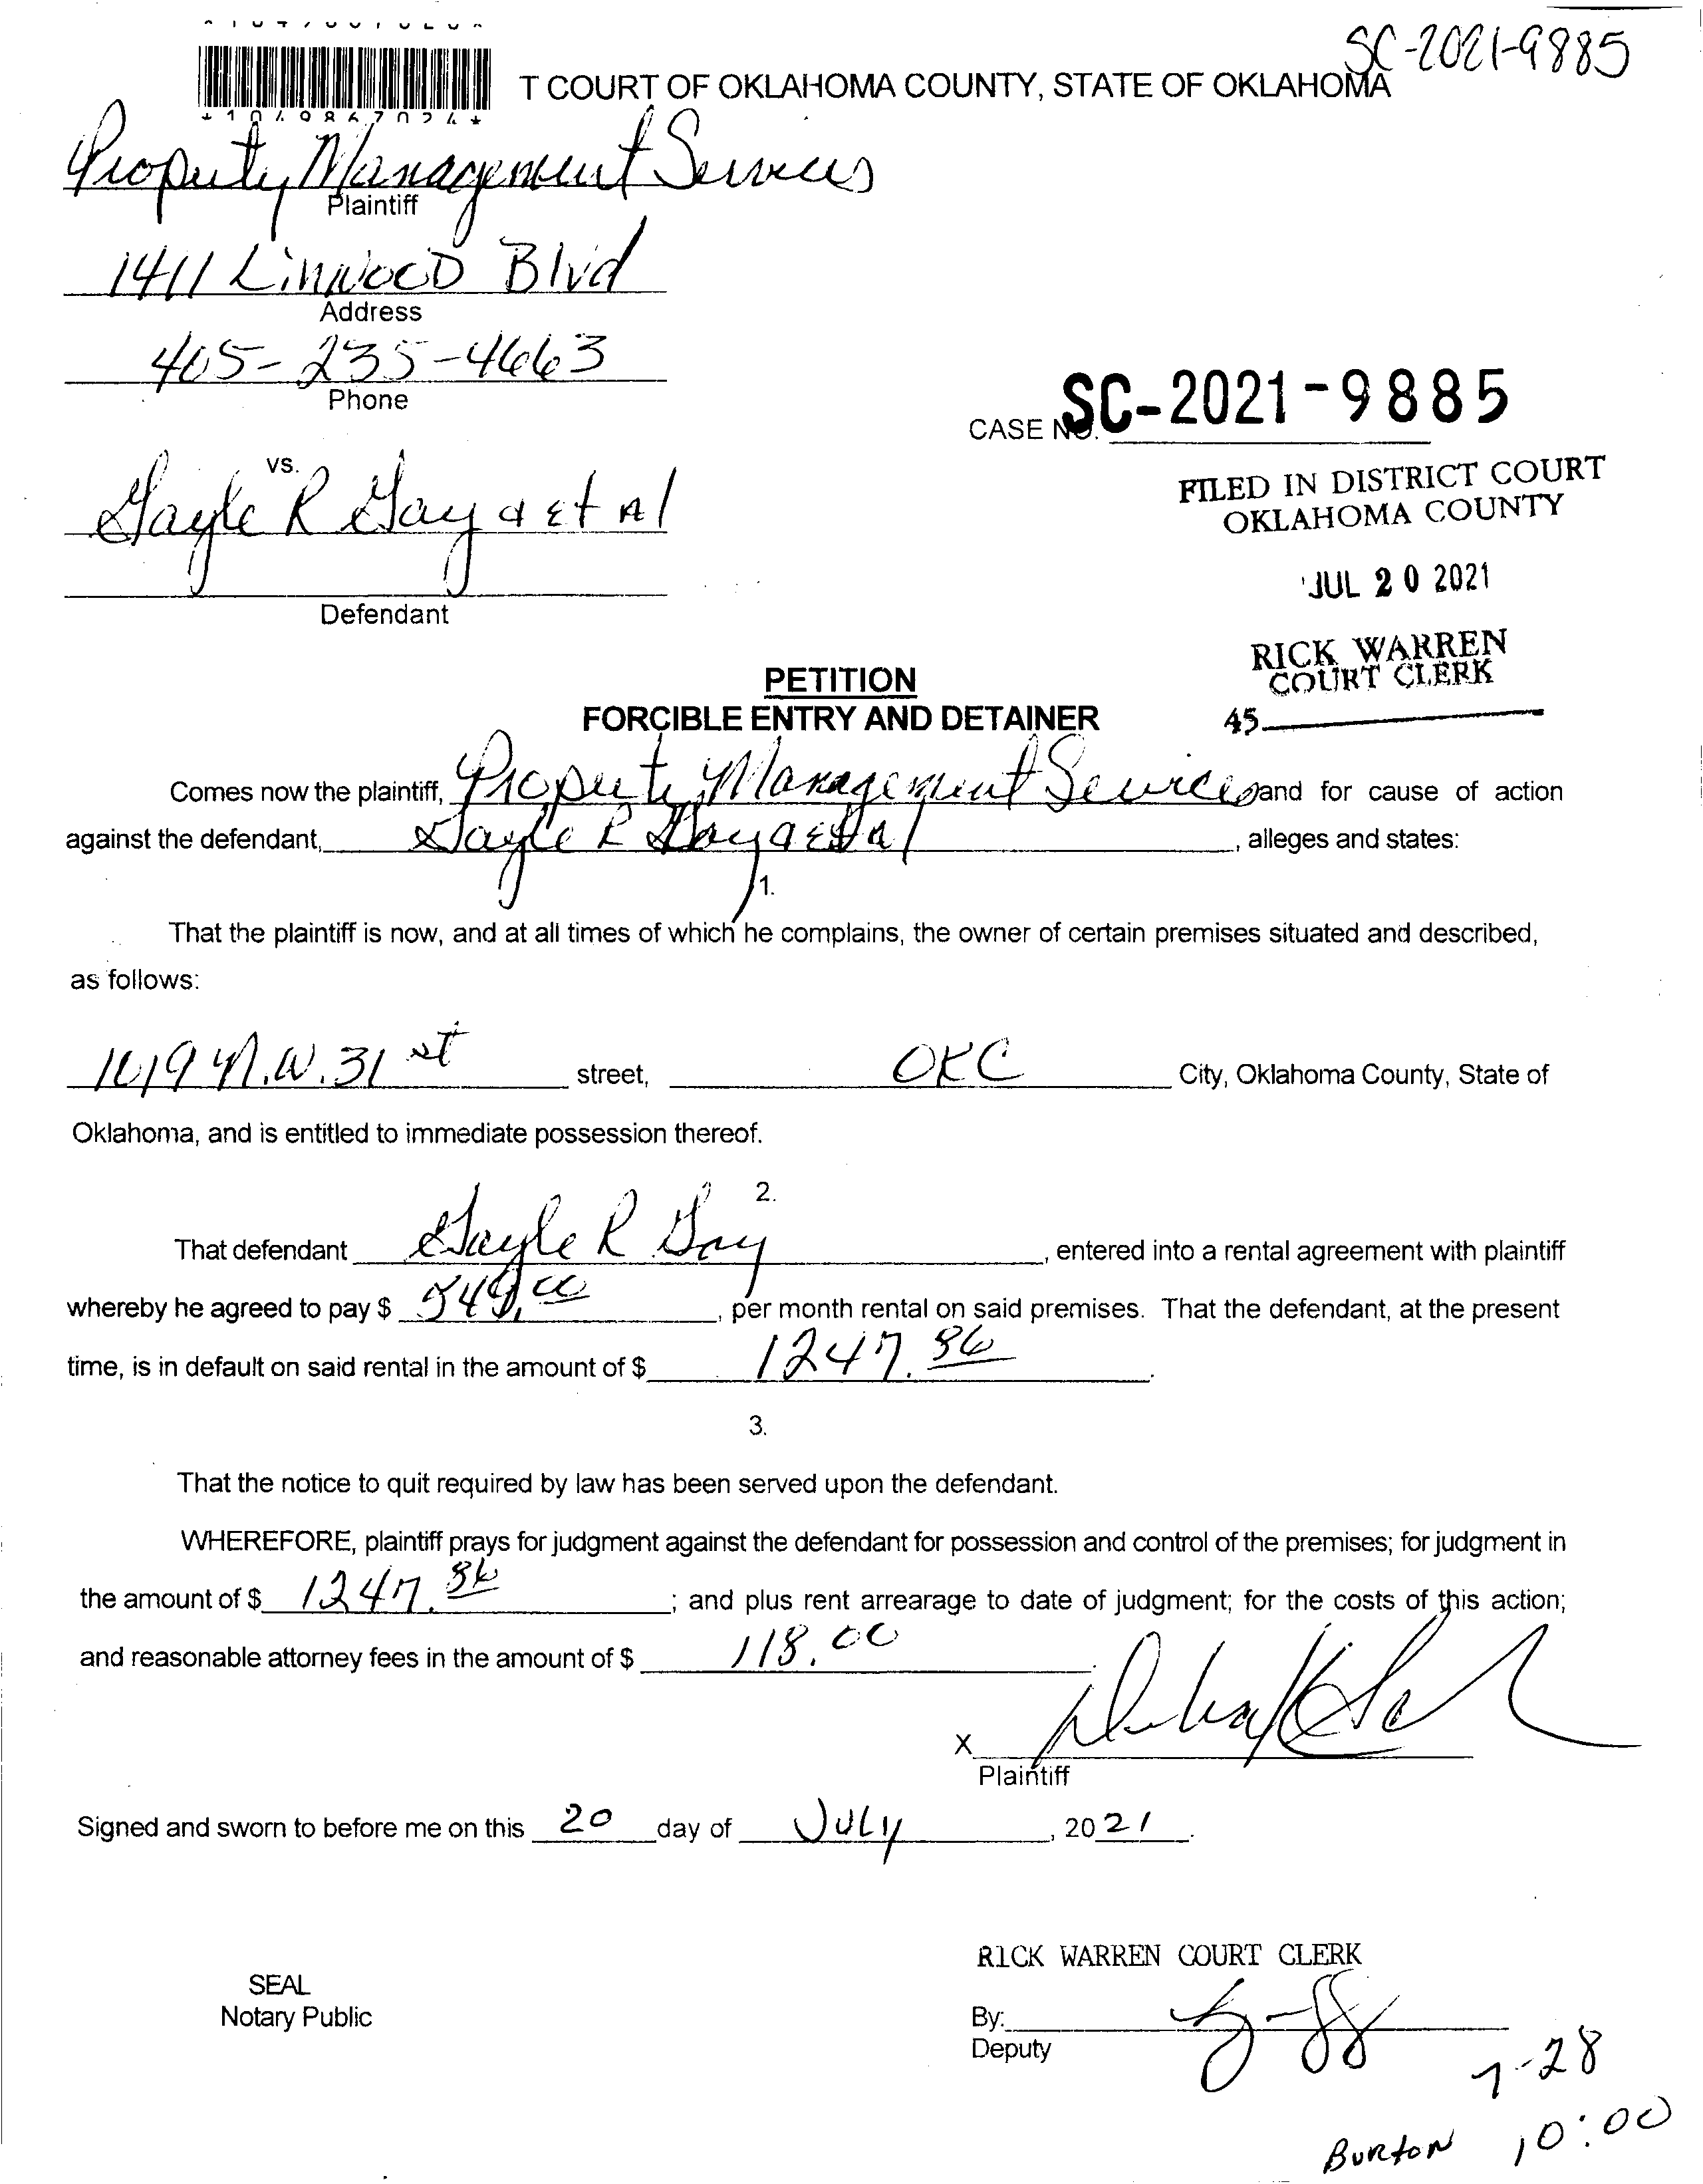 SC-2021-9885
T COURT OF OKLAHOMA COUNTY, STATE OF OKLAHOMA
Property Management Services
Plaintiff
1411 Linwood Blvd
Address
405-235-4663
Phone
CASE NO. SC-2021-9885
vs.
Gayle R Gay a et al
FILED IN DISTRICT COURT
OKLAHOMA COUNTY
JUL 20 2021
Defendant
RICK WARREN
COURT CLERK
45
PETITION
FORCIBLE ENTRY AND DETAINER
Comes now the plaintiff, Property Management Services and for cause of action
against the defendant, Gayle R Gay a et al, alleges and states:
1.
That the plaintiff is now, and at all times of which he complains, the owner of certain premises situated and described,
as follows:
N.W. 31 st street, OKC City, Oklahoma County, State of
Oklahoma, and is entitled to immediate possession thereof.
2.
That defendant Gayle R Gay, entered into a rental agreement with plaintiff
whereby he agreed to pay $, per month rental on said premises. That the defendant, at the present
time, is in default on said rental in the amount of $ 1247.86.
3.
That the notice to quit required by law has been served upon the defendant.
WHEREFORE, plaintiff prays for judgment against the defendant for possession and control of the premises; for judgment in
the amount of $ 1247.86; and plus rent arrearage to date of judgment; for the costs of this action;
and reasonable attorney fees in the amount of $ 118.00.
X
Plaintiff
Signed and sworn to before me on this 20 day of July, 2021.
RICK WARREN COURT CLERK
SEAL
Notary Public
By:
Deputy
7-28
Burton 10:00